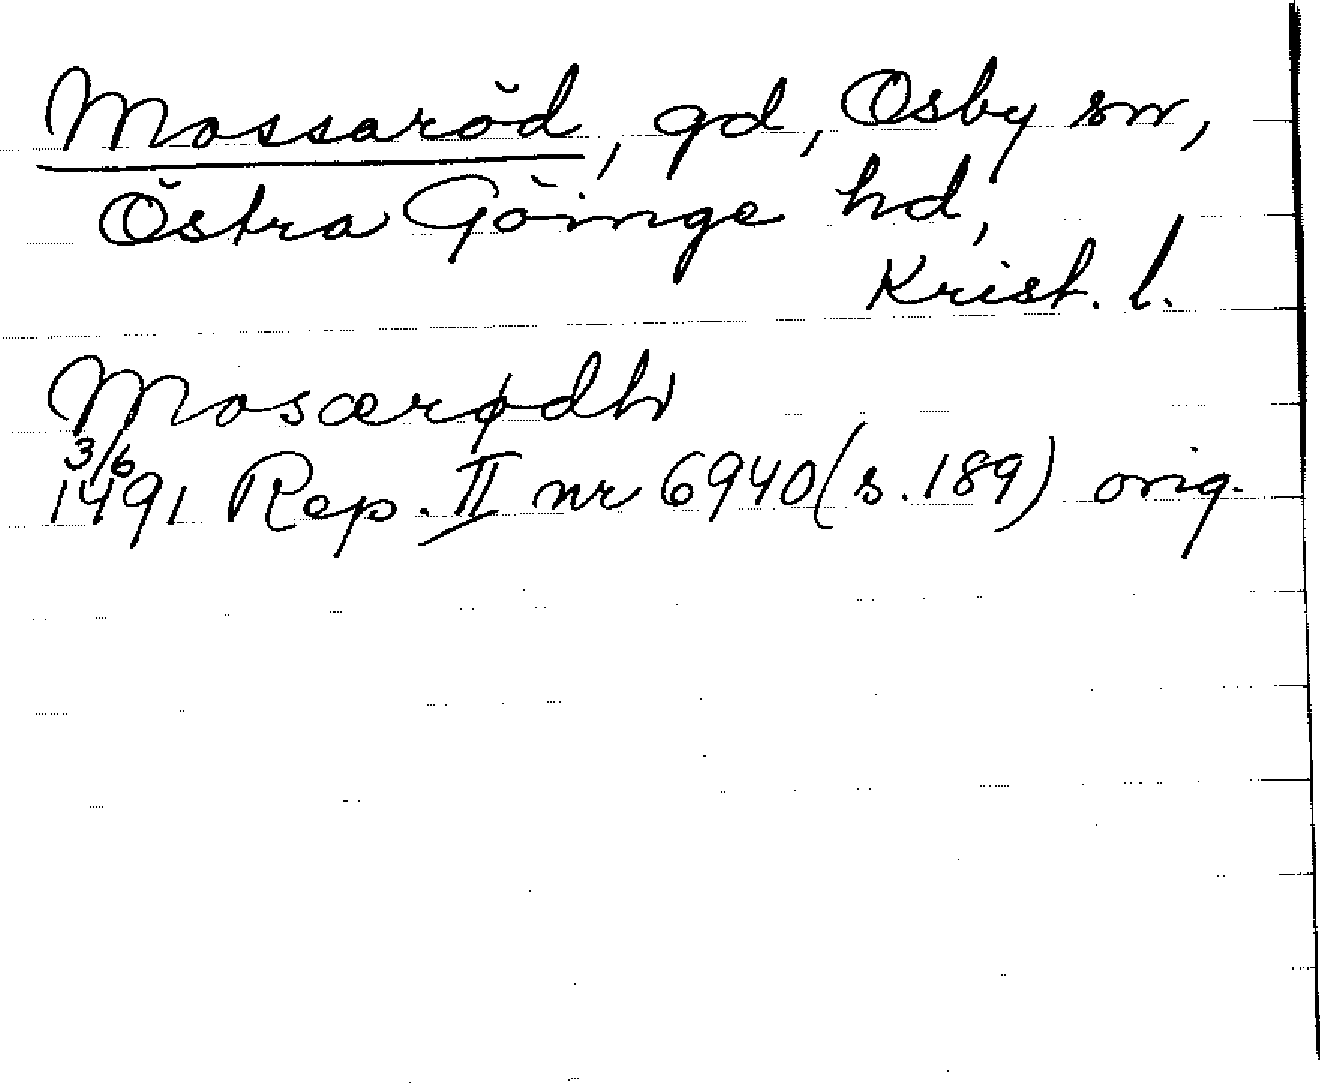 Mossaröd, gd, Osby sn,
Östra Göinge hd,
Krist. l.
Mosærødh
3/6
1491 Rep. II nr 6940 (s. 189) orig.